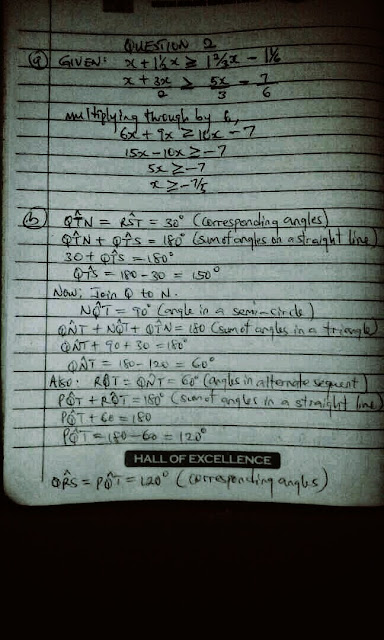 QUESTION 2
(a) GIVEN: x + 1½x ≥ 1⅔x - 1⅙
x + 3x/2 ≥ 5x/3 - 7/6
multiplying through by 6,
6x + 9x ≥ 10x - 7
15x - 10x ≥ -7
5x ≥ -7
x ≥ -7/5
(b) QT̂N = RŜT = 30° (Corresponding angles)
QT̂N + QT̂S = 180° (sum of angles on a straight line)
30 + QT̂S = 180°
QT̂S = 180 - 30 = 150°
Now; Join Q to N.
NQ̂T = 90° (angle in a semi-circle)
QN̂T + NQ̂T + QT̂N = 180 (sum of angles in a triangle)
QN̂T + 90 + 30 = 180°
QN̂T = 180 - 120 = 60°
Also: RQ̂T = QN̂T = 60° (angles in alternate segment)
PQ̂T + RQ̂T = 180° (sum of angles in a straight line)
PQ̂T + 60 = 180
PQ̂T = 180 - 60 = 120°
HALL OF EXCELLENCE
QR̂S = PQ̂T = 120° (corresponding angles)